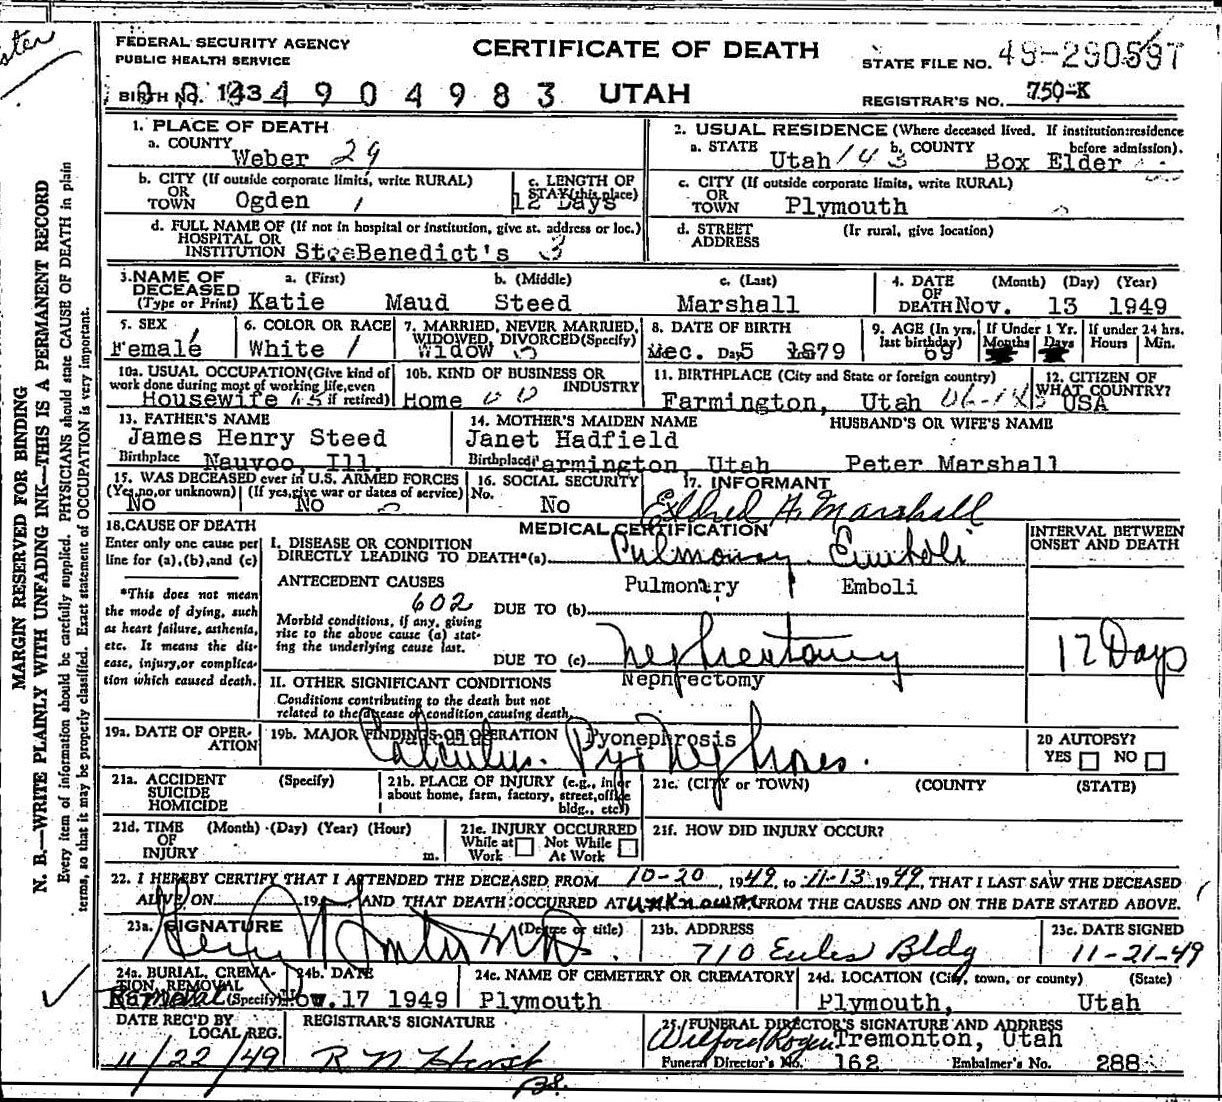 FEDERAL SECURITY AGENCY
PUBLIC HEALTH SERVICE
CERTIFICATE OF DEATH
STATE FILE NO. 49-290597
BIRTH NO. 134904983 UTAH
REGISTRAR'S NO. 750-K
MARGIN RESERVED FOR BINDING
N. B.—WRITE PLAINLY WITH UNFADING INK—THIS IS A PERMANENT RECORD
Every item of information should be carefully supplied. PHYSICIANS should state CAUSE OF DEATH in plain
terms, so that it may be properly classified. Exact statement of OCCUPATION is very important.
1. PLACE OF DEATH
a. COUNTY
Weber 29
2. USUAL RESIDENCE (Where deceased lived. If institution:residence
before admission).
a. STATE Utah 143 b. COUNTY Box Elder
b. CITY (If outside corporate limits, write RURAL)
OR
TOWN Ogden 1
c. LENGTH OF
STAY (this place)
12 Days
c. CITY (If outside corporate limits, write RURAL)
OR
TOWN Plymouth
d. FULL NAME OF (If not in hospital or institution, give st. address or loc.)
HOSPITAL OR
INSTITUTION St. Benedict's 3
d. STREET (If rural, give location)
ADDRESS
3. NAME OF DECEASED (Type or Print) a. (First) b. (Middle) c. (Last)
Katie Maud Steed Marshall
4. DATE OF DEATH (Month) (Day) (Year)
Nov. 13 1949
5. SEX
Female 1
6. COLOR OR RACE
White 1
7. MARRIED, NEVER MARRIED,
WIDOWED, DIVORCED (Specify)
Widow
8. DATE OF BIRTH
Dec. 5 1879
9. AGE (In yrs. last birthday)
69
If Under 1 Yr.
Months Days
If under 24 hrs.
Hours Min.
10a. USUAL OCCUPATION (Give kind of
work done during most of working life, even
if retired)
Housewife
10b. KIND OF BUSINESS OR
INDUSTRY
Home
11. BIRTHPLACE (City and State or foreign country)
Farmington, Utah
12. CITIZEN OF
WHAT COUNTRY?
USA
13. FATHER'S NAME
James Henry Steed
Birthplace Nauvoo, Ill.
14. MOTHER'S MAIDEN NAME
Janet Hadfield
Birthplace Farmington, Utah
HUSBAND'S OR WIFE'S NAME
Peter Marshall
15. WAS DECEASED ever in U.S. ARMED FORCES
(Yes, no, or unknown) (If yes, give war or dates of service)
No No
16. SOCIAL SECURITY
No.
No
17. INFORMANT
Eldred H. Marshall
18. CAUSE OF DEATH
Enter only one cause per
line for (a), (b), and (c)
*This does not mean
the mode of dying, such
as heart failure, asthenia,
etc. It means the dis-
ease, injury, or complica-
tion which caused death.
MEDICAL CERTIFICATION
INTERVAL BETWEEN
ONSET AND DEATH
I. DISEASE OR CONDITION
DIRECTLY LEADING TO DEATH*(a) Pulmonary Emboli
Pulmonary Emboli
ANTECEDENT CAUSES
602
DUE TO (b)
Morbid conditions, if any, giving
rise to the above cause (a) stat-
ing the underlying cause last.
DUE TO (c) Nephrectomy 12 Days
Nephrectomy
II. OTHER SIGNIFICANT CONDITIONS
Conditions contributing to the death but not
related to the disease or condition causing death.
19a. DATE OF OPER-
ATION
19b. MAJOR FINDINGS OF OPERATION
Calculus Pyonephrosis
Calculus. Pyonephrosis.
20 AUTOPSY?
YES NO
21a. ACCIDENT (Specify)
SUICIDE
HOMICIDE
21b. PLACE OF INJURY (e.g., in or
about home, farm, factory, street, office
bldg., etc.)
21c. (CITY or TOWN) (COUNTY) (STATE)
21d. TIME (Month) (Day) (Year) (Hour)
OF
INJURY m.
21e. INJURY OCCURRED
While at Work Not While At Work
21f. HOW DID INJURY OCCUR?
22. I HEREBY CERTIFY THAT I ATTENDED THE DECEASED FROM 10-20, 1949, to 11-13 1949, THAT I LAST SAW THE DECEASED
ALIVE ON 19 AND THAT DEATH OCCURRED AT unknown M. FROM THE CAUSES AND ON THE DATE STATED ABOVE.
23a. SIGNATURE (Degree or title)
23b. ADDRESS
710 Eccles Bldg
23c. DATE SIGNED
11-21-49
24a. BURIAL, CREMA-
TION, REMOVAL (Specify)
Removal
24b. DATE
Nov. 17 1949
24c. NAME OF CEMETERY OR CREMATORY
Plymouth
24d. LOCATION (City, town, or county) (State)
Plymouth, Utah
DATE REC'D BY
LOCAL REG.
11/22/49
REGISTRAR'S SIGNATURE
25. FUNERAL DIRECTOR'S SIGNATURE AND ADDRESS
Tremonton, Utah
Funeral Director's No. 162 Embalmer's No. 288